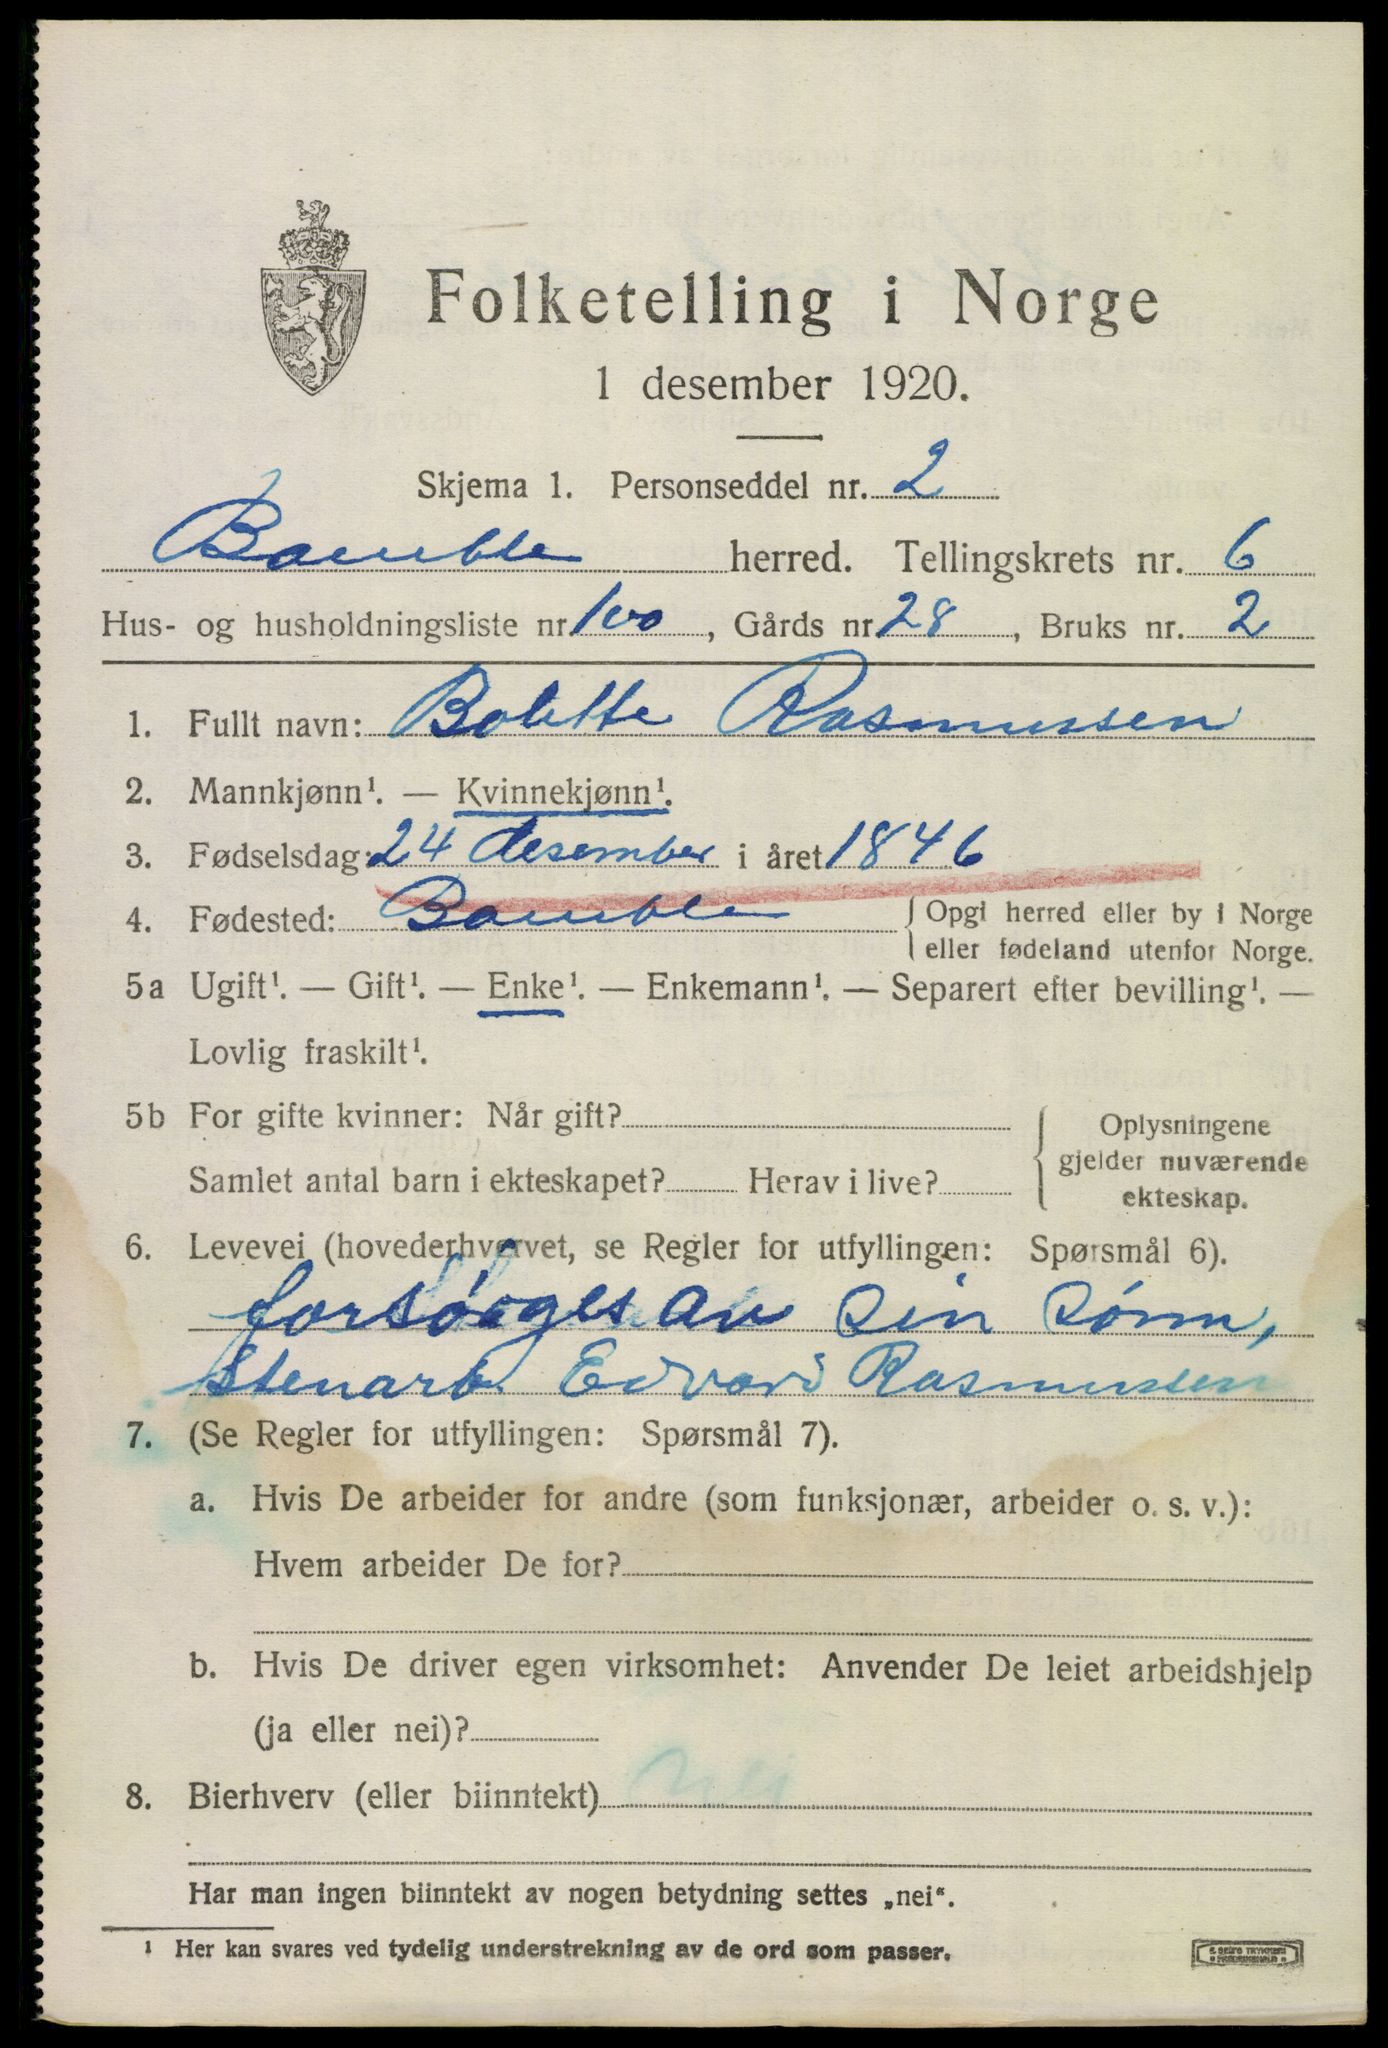 Folketelling i Norge
1 desember 1920.
Skjema 1. Personseddel nr. 2
Bamble herred. Tellingskrets nr. 6
Hus- og husholdningsliste nr. 100, Gårds nr. 28, Bruks nr. 2
1. Fullt navn: Bolette Rasmussen
2. Mannkjønn¹. — Kvinnekjønn¹.
3. Fødselsdag: 24 desember i året 1846
4. Fødested: Bamble { Opgi herred eller by i Norge
eller fødeland utenfor Norge.
5a Ugift¹. — Gift¹. — Enke¹. — Enkemann¹. — Separert efter bevilling¹. —
Lovlig fraskilt¹.
5b For gifte kvinner: Når gift? { Oplysningene
gjelder nuværende
Samlet antal barn i ekteskapet? Herav i live? ekteskap.
6. Levevei (hovederhvervet, se Regler for utfyllingen: Spørsmål 6).
forsørges av sin sønn,
stenarb. Edvard Rasmussen
7. (Se Regler for utfyllingen: Spørsmål 7).
a. Hvis De arbeider for andre (som funksjonær, arbeider o. s. v.):
Hvem arbeider De for?
b. Hvis De driver egen virksomhet: Anvender De leiet arbeidshjelp
(ja eller nei)?
8. Bierhverv (eller biinntekt) nei
Har man ingen biinntekt av nogen betydning settes „nei“.
¹ Her kan svares ved tydelig understrekning av de ord som passer.